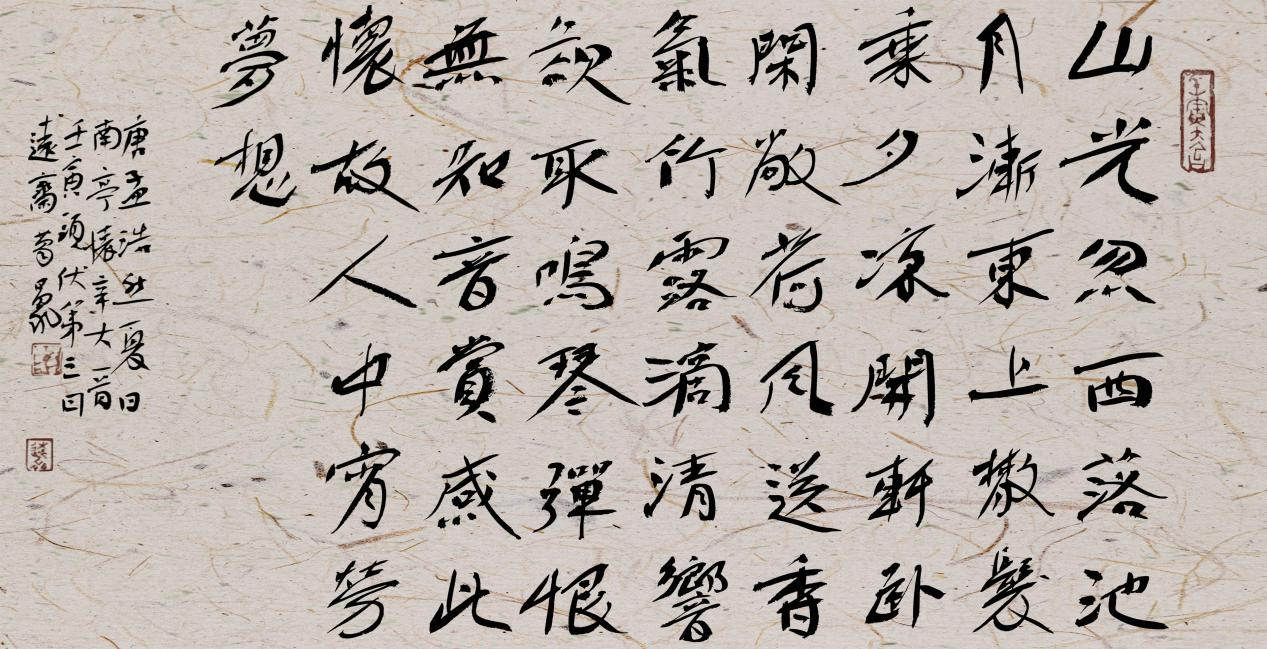 壬寅大吉
山光忽西落池
月漸東上散髮
乘夕凉開軒臥
閑敞荷風送香
氣竹露滴清響
欲取鳴琴彈恨
無知音賞感此
懷故人中宵勞
夢想
唐孟浩然夏日
南亭懷辛大一首
壬寅頭伏第三日
遠齋